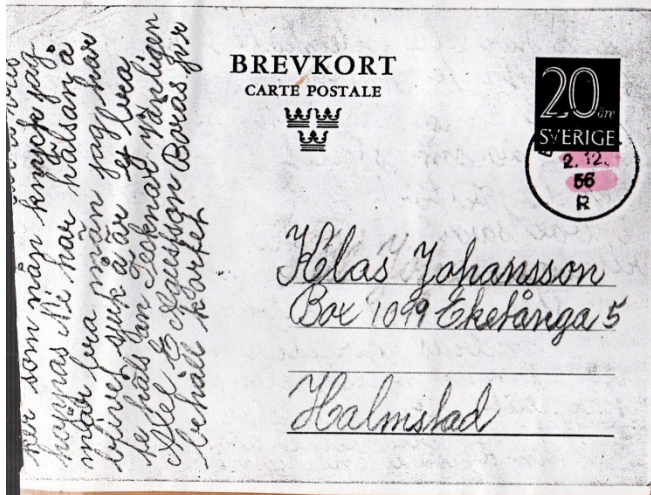 BREVKORT
CARTE POSTALE
20 öre
SVERIGE
2.12.
56
R
Klas Johansson
Box 1099 Eketånga 5
Halmstad
som nån knyck jag
hoppas Ni har hälsan å
mår bra män jag har
blivet sjuk å är ej bra
se häls fan Tecknar vänligen
Alef E Boras för
behåll kortet